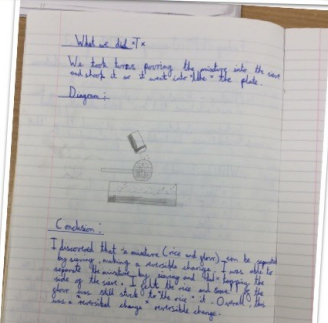 What we did : Tx
We took turns pouring the mixture into the sieve
and shook it so it went into the the plate.
Diagram :
Conclusion :
I discovered that a mixture (rice and flour) can be
by sieving, making a reversible change. I was able to
separate the mixture by sieving and tapping the
side of the sieve. I felt the rice and some of the
flour was still stuck to the rice it. Overall this
was a reversible change.